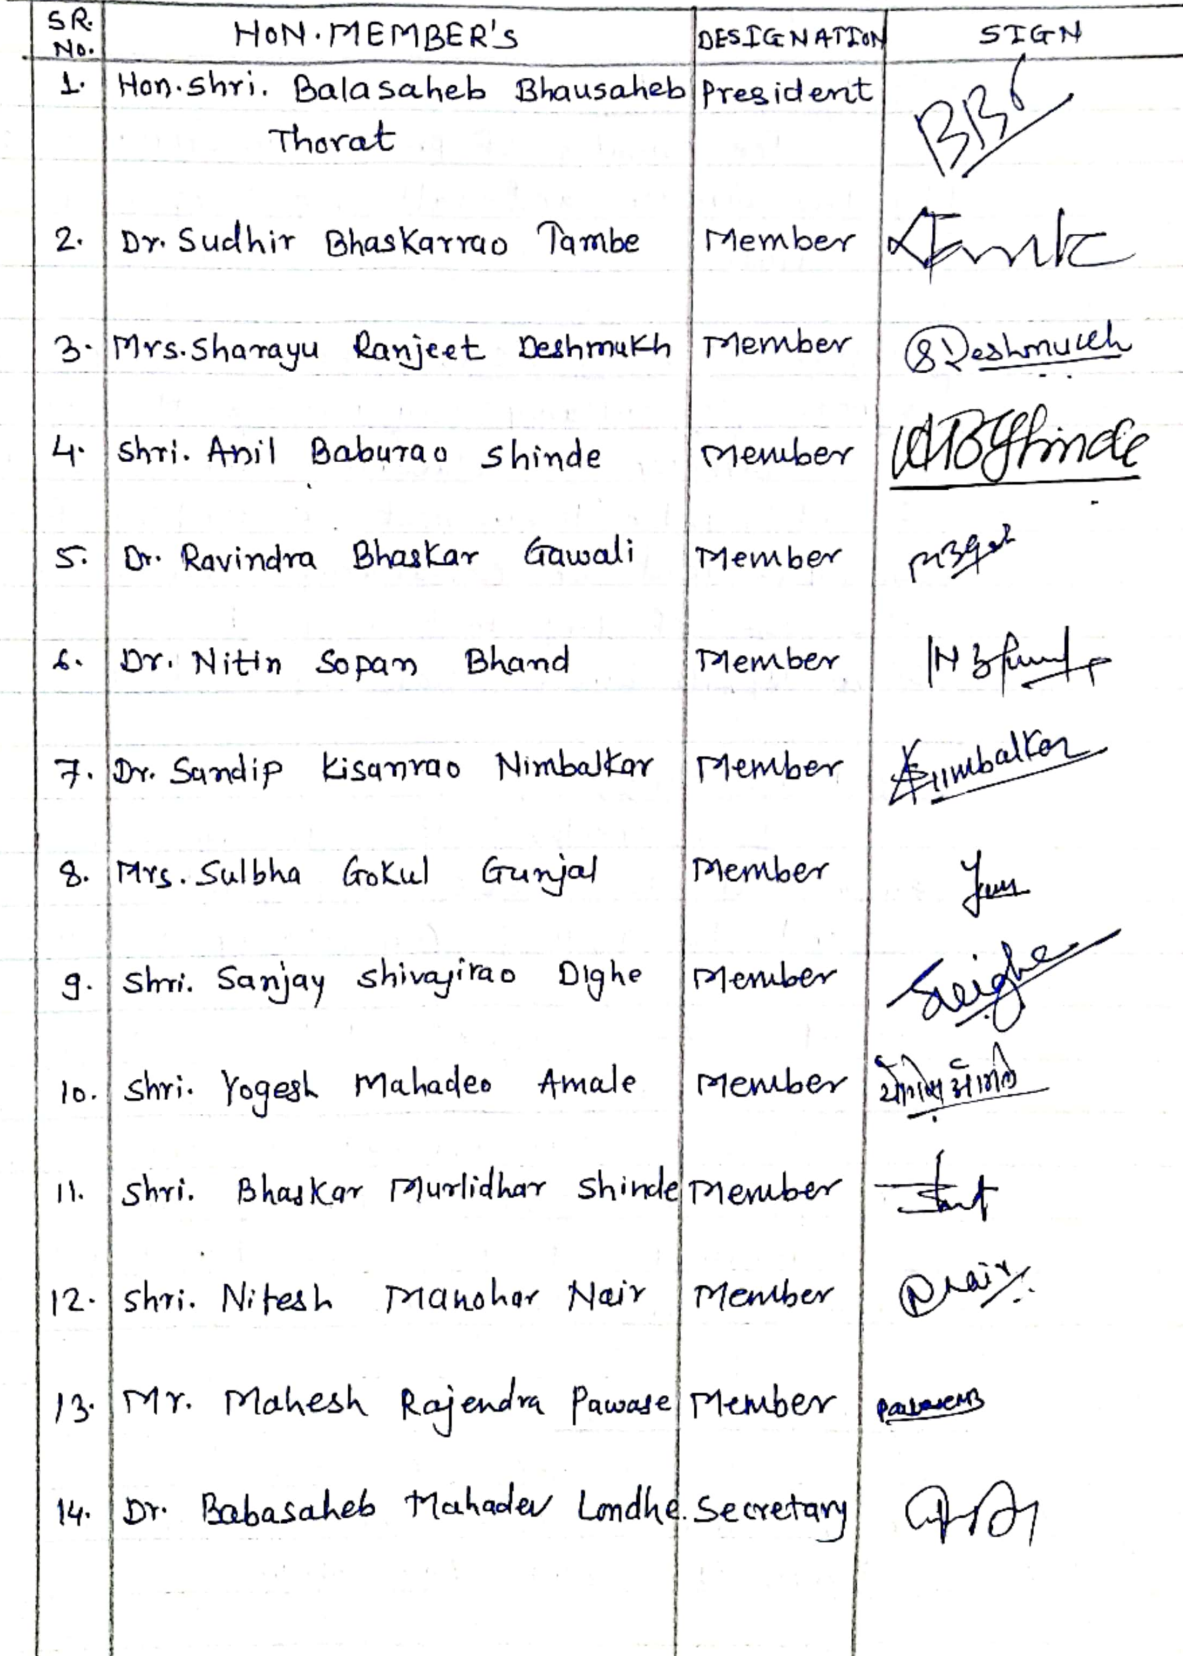 SR. No. HON. MEMBER'S DESIGNATION SIGN
1. Hon. Shri. Balasaheb Bhausaheb President
Thorat
2. Dr. Sudhir Bhaskarrao Tambe Member
3. Mrs. Sharayu Ranjeet Deshmukh Member SDeshmukh
4. Shri. Anil Baburao Shinde Member ABShinde
5. Dr. Ravindra Bhaskar Gawali Member
6. Dr. Nitin Sopan Bhand Member
7. Dr. Sandip Kisanrao Nimbalkar Member SNimbalkar
8. Mrs. Sulbha Gokul Gunjal Member
9. Shri. Sanjay Shivajirao Dighe Member
10. Shri. Yogesh Mahadeo Amale Member
11. Shri. Bhaskar Murlidhar Shinde Member
12. Shri. Nitesh Manohar Nair Member
13. Mr. Mahesh Rajendra Pawase Member
14. Dr. Babasaheb Mahadev Londhe. Secretary